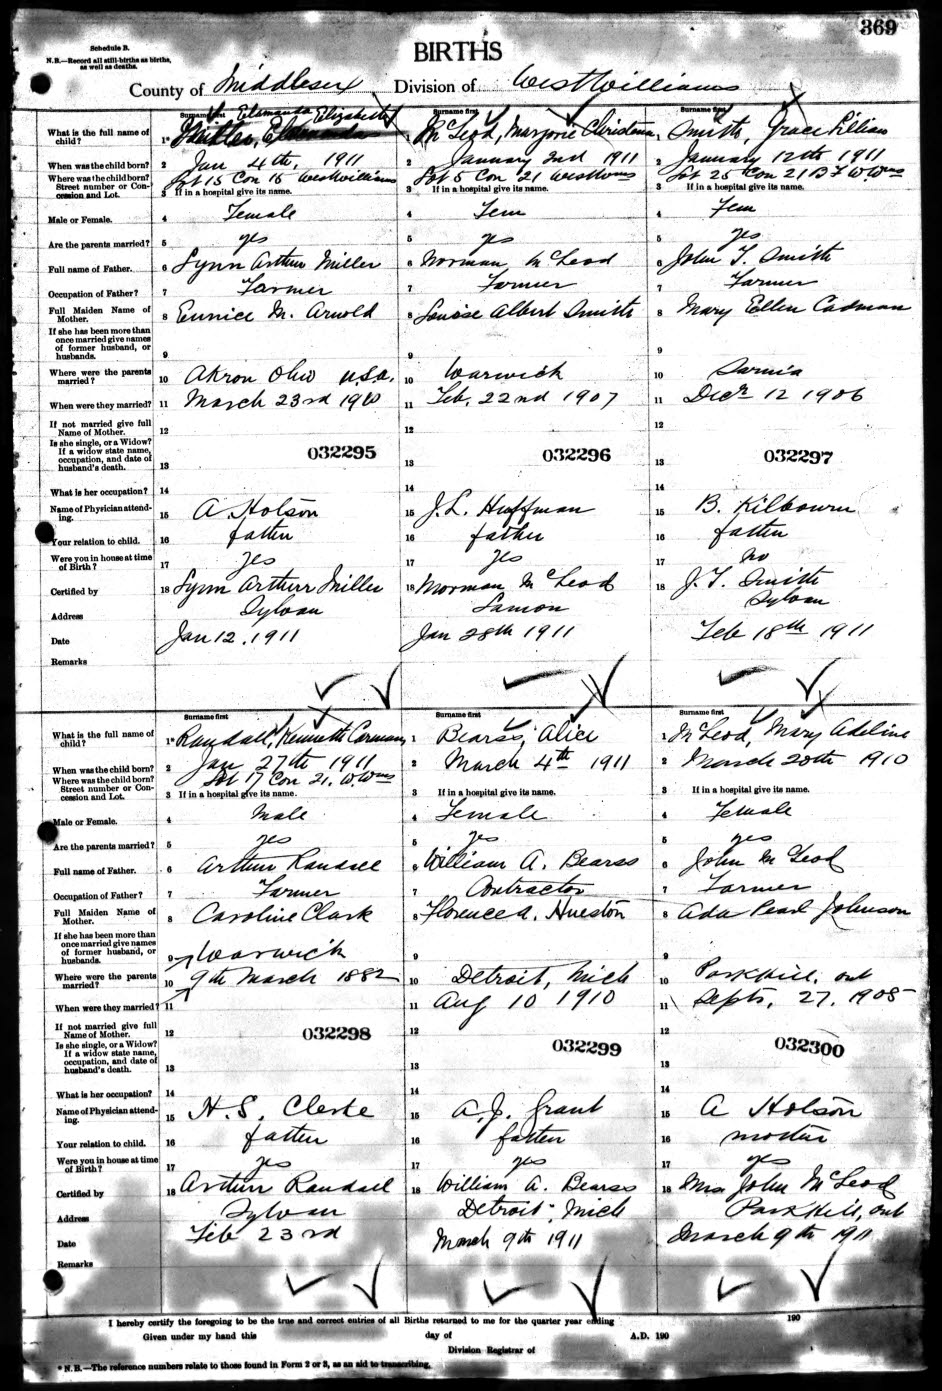 369
Schedule B.
N.B.—Record all still-births as births, as well as deaths.
BIRTHS
County of Middlesex Division of West Williams
Surname first Surname first Surname first
What is the full name of child? 1* Elemanda Elizabeth 1* McLeod, Marjorie Christena 1* Smith, Grace Lillian
When was the child born? 2 Jan 4th, 1911 2 January 2nd 1911 2 January 12th 1911
Where were the child born? Street number or Concession and Lot. Lot 15 Con 16 West Williams Lot 5 Con 21 West Wms Lot 25 Con 21 W. Wms
3 If in a hospital give its name. 3 If in a hospital give its name. 3 If in a hospital give its name.
Male or Female. 4 Female 4 Fem 4 Fem
Are the parents married? 5 yes 5 yes 5 yes
Full name of Father. 6 Lynn Arthur Miller 6 Norman McLeod 6 John T. Smith
Occupation of Father? 7 Farmer 7 Farmer 7 Farmer
Full Maiden Name of Mother. 8 Eunice M. Arnold 8 Louise Albert Smith 8 Mary Ellen Cadman
If she has been more than once married give names of former husband, or husbands. 9 9 9
Where were the parents married? 10 Akron Ohio U.S.A. 10 Warwick 10 Sarnia
When were they married? 11 March 23rd 1910 11 Feb. 22nd 1907 11 Decr 12 1906
If not married give full Name of Mother. 12 12 12
Is she single, or a Widow? If a widow state name, occupation, and date of husband's death. 13 032295 13 032296 13 032297
What is her occupation? 14 14 14
Name of Physician attending. 15 A. Hotson 15 J. L. Huffman 15 B. Kilbourn
Your relation to child. 16 father 16 father 16 father
Were you in house at time of Birth? 17 yes 17 yes 17 no
Certified by 18 Lynn Arthurr Miller 18 Norman McLeod 18 J. T. Smith
Address Sylvan Sylvan
Date Jan 12, 1911 Jan 28th 1911 Feb 18th 1911
Remarks
Surname first Surname first Surname first
What is the full name of child? 1* Randall, Kenneth Carman 1 Bearss, Alice 1 McLeod, Mary Adeline
When was the child born? 2 Jan 27th 1911 2 March 4th 1911 2 March 20th 1910
Where was the child born? Street number or Concession and Lot. Lot 17 Con 21, W. Wms
3 If in a hospital give its name. 3 If in a hospital give its name. 3 If in a hospital give its name.
Male or Female. 4 Male 4 Female 4 Female
Are the parents married? 5 yes 5 yes 5 yes
Full name of Father. 6 Arthur Randall 6 William A. Bearss 6 John McLeod
Occupation of Father? 7 Farmer 7 Contractor 7 Farmer
Full Maiden Name of Mother. 8 Caroline Clark 8 Florence A. Hueston 8 Ada Pearl Johnson
If she has been more than once married give names of former husband, or husbands. 9 Warwick 9 9
Where were the parents married? 10 9th March 1882 10 Detroit, Mich 10 Parkhill, Ont
When were they married? 11 11 Aug 10 1910 11 Septs, 27, 1905
If not married give full Name of Mother. 12 12 12
Is she single, or a Widow? If a widow state name, occupation, and date of husband's death. 13 032298 13 032299 13 032300
What is her occupation? 14 14 14
Name of Physician attending. 15 H. S. Clerke 15 A. J. Grant 15 A Hotson
Your relation to child. 16 father 16 father 16 mother
Were you in house at time of Birth? 17 yes 17 yes 17 yes
Certified by 18 Arthur Randall 18 William A. Bearss 18 Mrs John McLeod
Address Sylvan Detroit, Mich Parkhill, Ont
Date Feb 23rd March 9th 1911 March 9th 1911
Remarks
I hereby certify the foregoing to be the true and correct entries of all Births returned to me for the quarter year ending 190
Given under my hand this day of A.D. 190
Division Registrar of
* N.B.—The reference numbers relate to those found in Form 2 or 3, as an aid to transcribing.